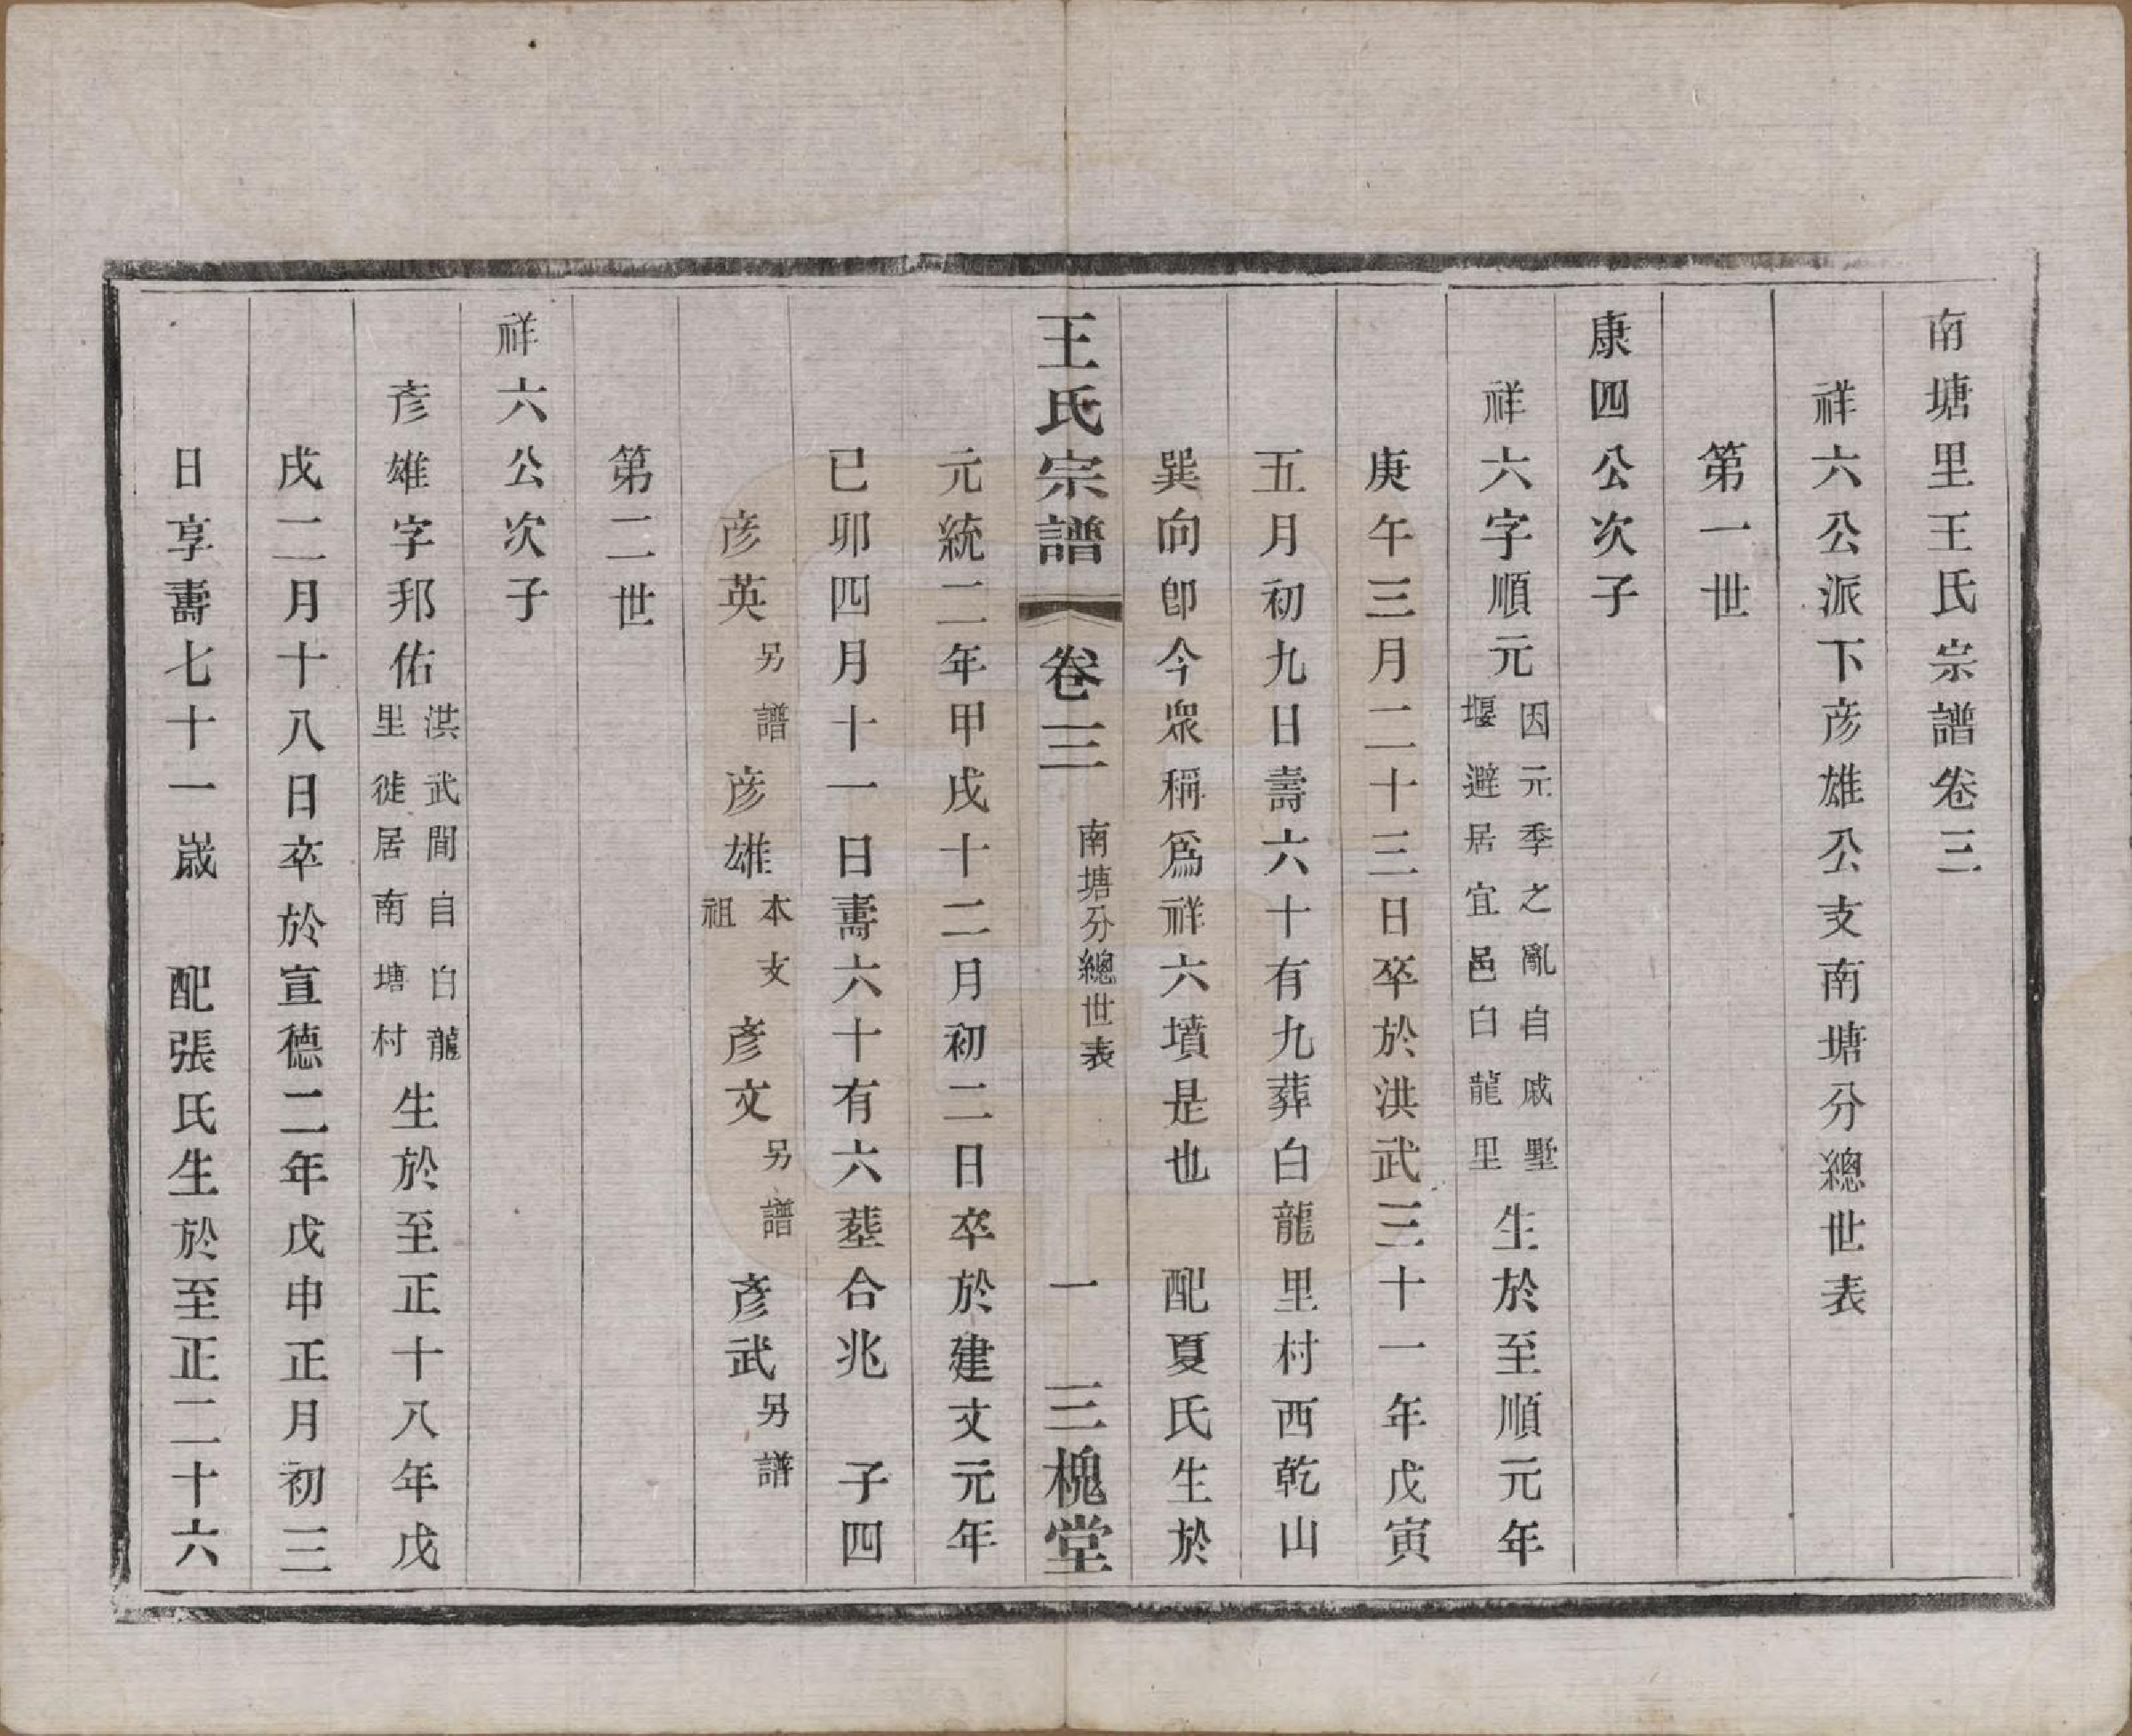 南塘里王氏宗譜卷三
祥六公派下彥雄公支南塘分總世表
第一世
康四公次子
祥六字順元
因元季之亂自戚墅
堰避居宜邑白龍里
生於至順元年
庚午三月二十三日卒於洪武三十一年戊寅
五月初九日壽六十有九葬白龍里村西乾山
巽向卽今眾稱爲祥六墳是也　配夏氏生於
王氏宗譜　卷三　南塘分總世表　一　三槐堂
元統二年甲戌十二月初二日卒於建文元年
已卯四月十一日壽六十有六塟合兆　子四
彥英
另譜
彥雄
本支
祖
彥文
另譜
彥武
另譜
第二世
祥六公次子
彥雄字邦佑
洪武間自白龍
里徙居南塘村
生於至正十八年戊
戌二月十八日卒於宣德二年戊申正月初三
日享壽七十一歲　配張氏生於至正二十六